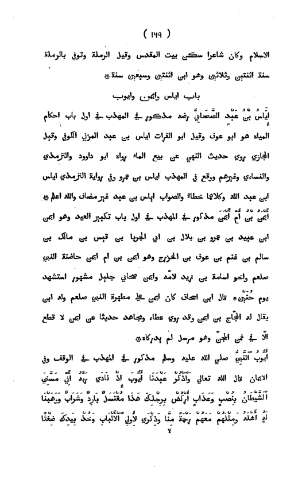 ( ١٤٩ )
الاسلام وكان شاعرا سكن بيت المقدس وقيل الرملة وتوفى بالرملة
سنة اثنتين وثلاثين وهو ابن اثنتين وسبعين سنة ۞
باب اياس وايمن وايوب
إِيَاسُ بْنُ عَبْدٍ الصحابىّ رضه مذكور فى المهذب فى اول باب احكام
المياه هو ابو عوف وقيل ابو الفرات اياس بن عبد المزنى الكوفى وقيل
الحجازى روى حديث النهى عن بيع الماء رواه ابو داوود والترمذى
والنساءى وغيرهم ووقع فى المهذب اياس بن عمرو وفى رواية الترمذى
ابن عبد الله وكلاهما خطاء والصواب اياس بن عبد غير مضاف والله اعلم ۞
أَيْمَنُ بْنُ أُمِّ أَيْمَنَ مذكور فى المهذب فى اول باب تكبير العيد وهو ايمن
ابن عبيد بن عمرو بن بلال بن ابى الجربا بن قيس بن مالك بن
سالم بن غنم بن عوف بن الخزرج وهو ايمن بن ام ايمن حاضنة النبى
صلعم واخو اسامة بن زيد لامّه وايمن صحابى جليل مشهور استشهد
يوم حُنَيْن ۞ قال ابن اسحاق كان ايمن على مطهرة النبى صلعم وله ابن
يقال له الحجاج بن ايمن وقد روى عطاء ومجاهد حديثا عن ايمن لا قطع
الّا فى ثمن المجنّ وهو مرسل لم يدركاه ۞
أَيُّوبُ النَّبِىُّ صلى الله عليه وسلم مذكور فى المهذب فى الوقف وفى
الايمان قال الله تعالى وَٱذْكُرْ عَبْدَنَا أَيُّوبَ إِذْ نَادَى رَبَّهُ أَنِّى مَسَّنِىَ
الشَّيْطَانُ بِنُصْبٍ وَعَذَابٍ ٱرْكُضْ بِرِجْلِكَ هٰذَا مُغْتَسَلٌ بَارِدٌ وَشَرَابٌ وَوَهَبْنَا
لَهُ أَهْلَهُ وَمِثْلَهُمْ مَعَهُمْ رَحْمَةً مِنَّا وَذِكْرَى لِأُولِى الْأَلْبَابِ وَخُذْ بِيَدِكَ ضِغْثًا